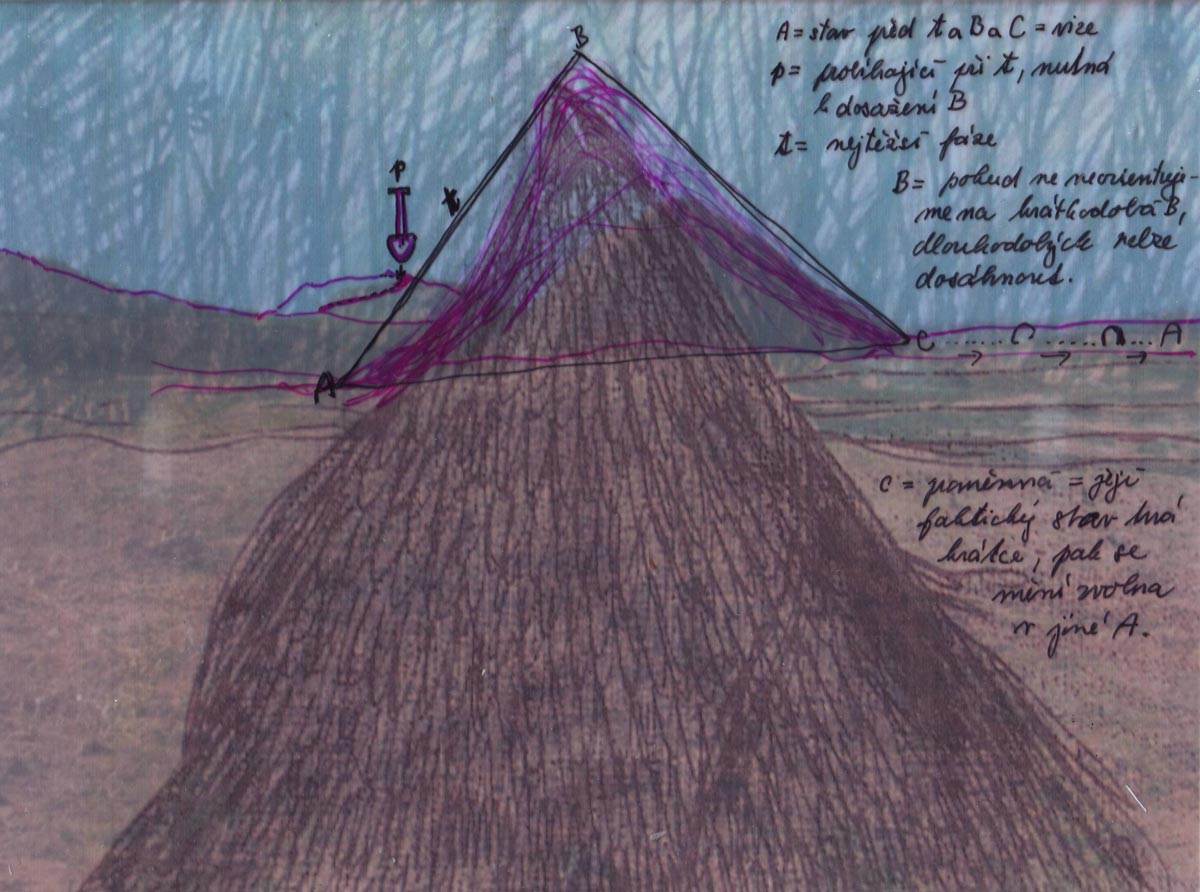 B
A = stav před t a B a C = vize
p = probíhající při t, nutná
k dosažení B
t = nejtěžší fáze
p
t
B = pokud ne neorientuje-
me na krátkodobá B,
dlouhodobých nelze
dosáhnout.
C ...... C ..... ... A
A
C = proměnná = její
faktický stav trvá
krátce, pak se
mění zvolna
v jiné A.